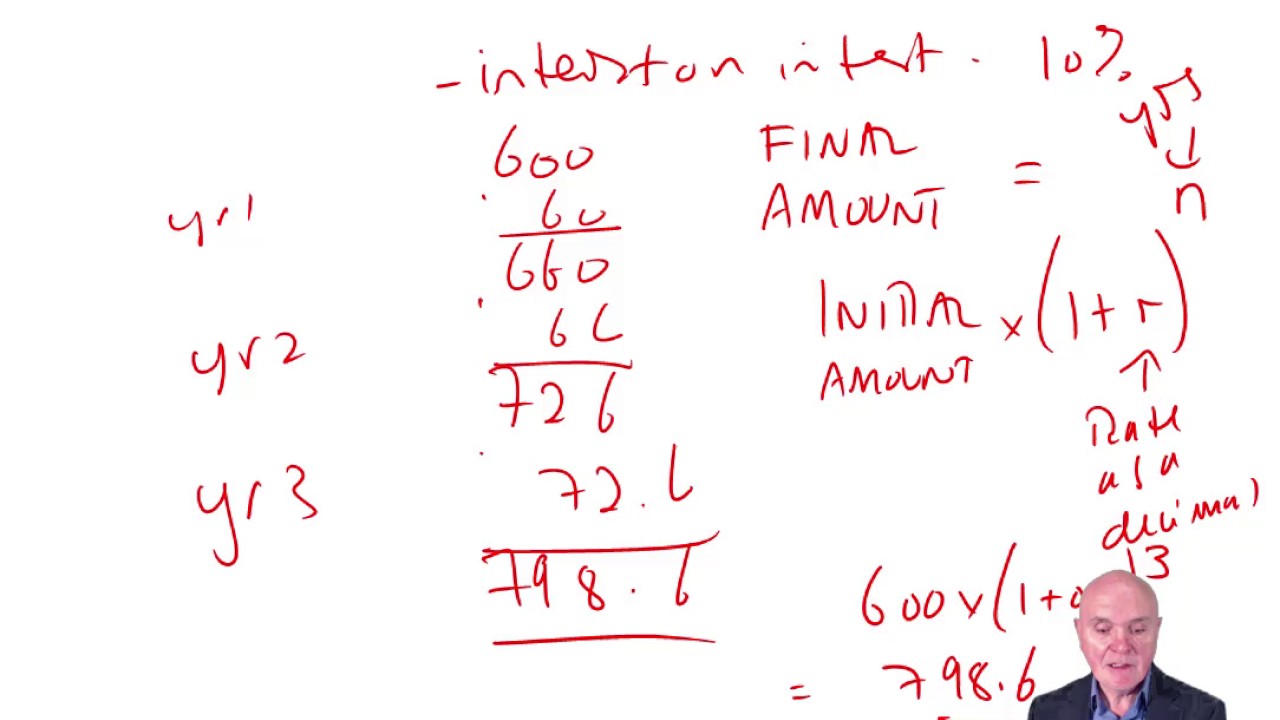 - interst on intest. 10%
600
yr1 60
660
yr2 66
726
yr3 72.6
798.6
FINAL
AMOUNT =
yrs
n
INITIAL × (1 + r)
AMOUNT
Rate
as a
decimal
600 × (1 + 3
= 798.6